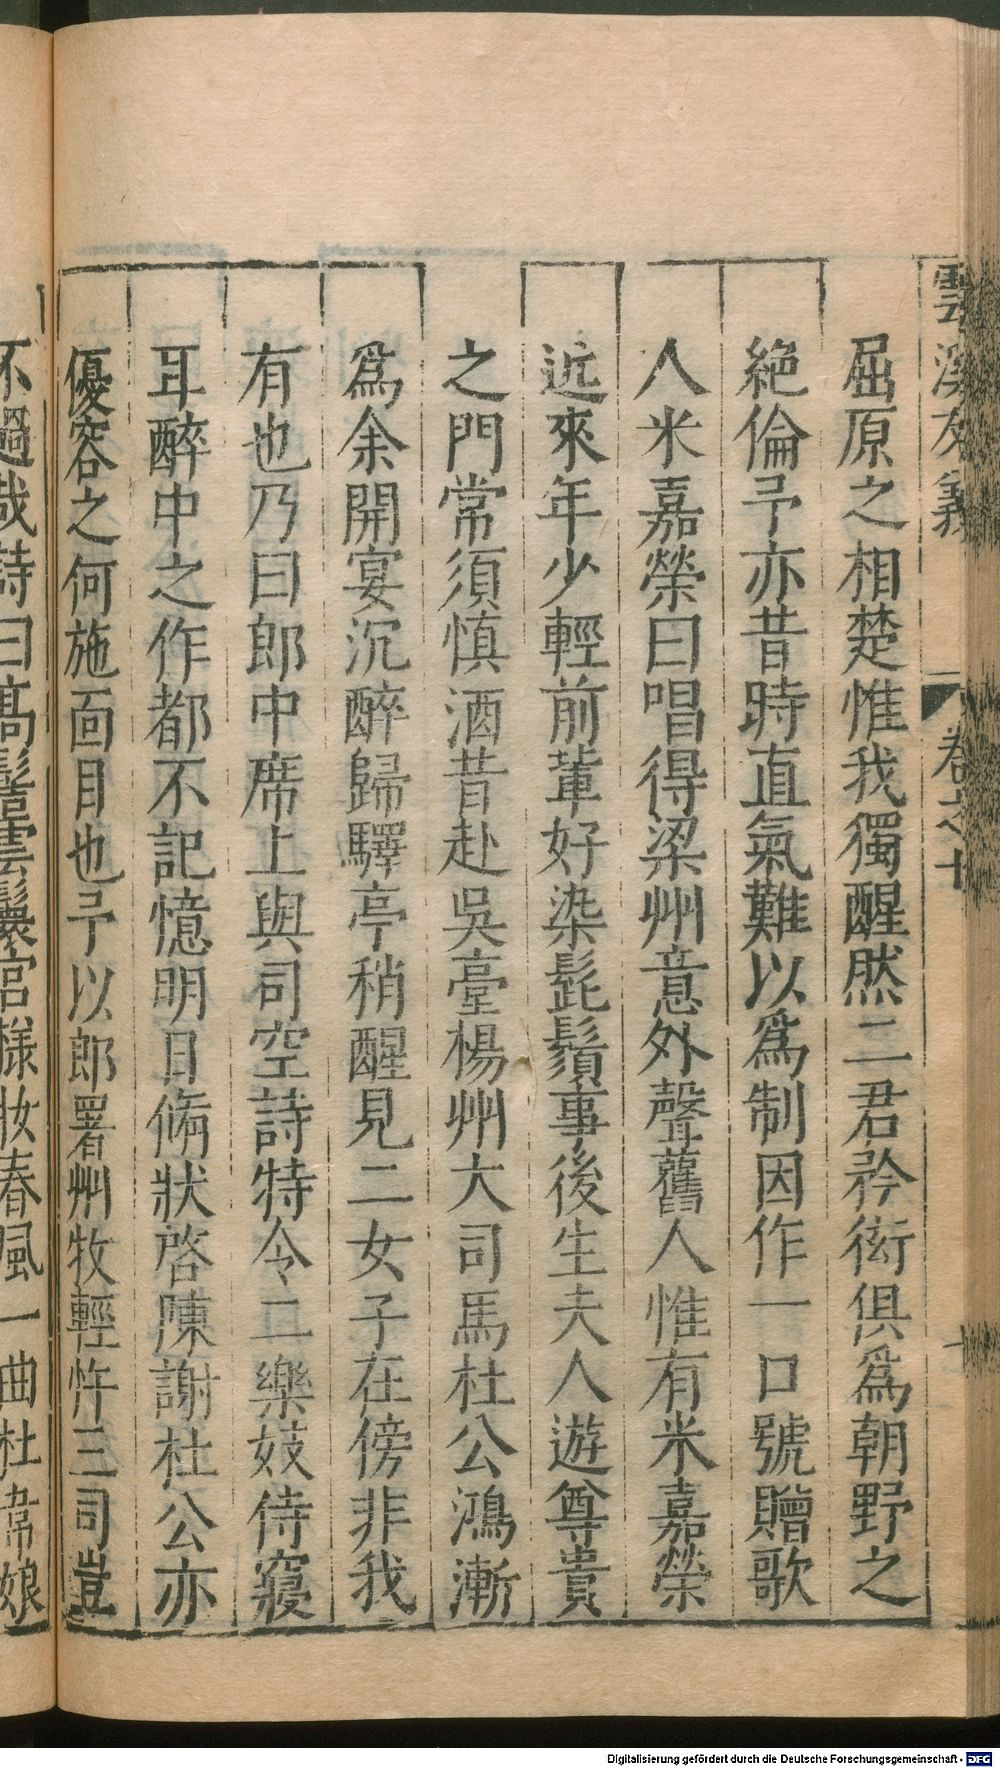 雲溪友議
卷之十
屈原之相楚惟我獨醒然二君矜衒俱爲朝野之
絶倫予亦昔時直氣難以爲制因作一口號贈歌
人米嘉榮曰唱得梁州意外聲舊人惟有米嘉榮
近來年少輕前輩好染髭鬚事後生夫人遊尊貴
之門常須慎酒昔赴吳臺楊州大司馬杜公鴻漸
爲余開宴沉醉歸驛亭稍醒見二女子在傍非我
有也乃曰郎中席上與司空詩特令二樂妓侍寢
耳醉中之作都不記憶明日脩狀啓陳謝杜公亦
優容之何施面目也予以郎署州牧輕忤三司豈
不過哉詩曰高髻雲鬟宮樣妝春風一曲杜韋娘
Digitalisierung gefördert durch die Deutsche Forschungsgemeinschaft - DFG